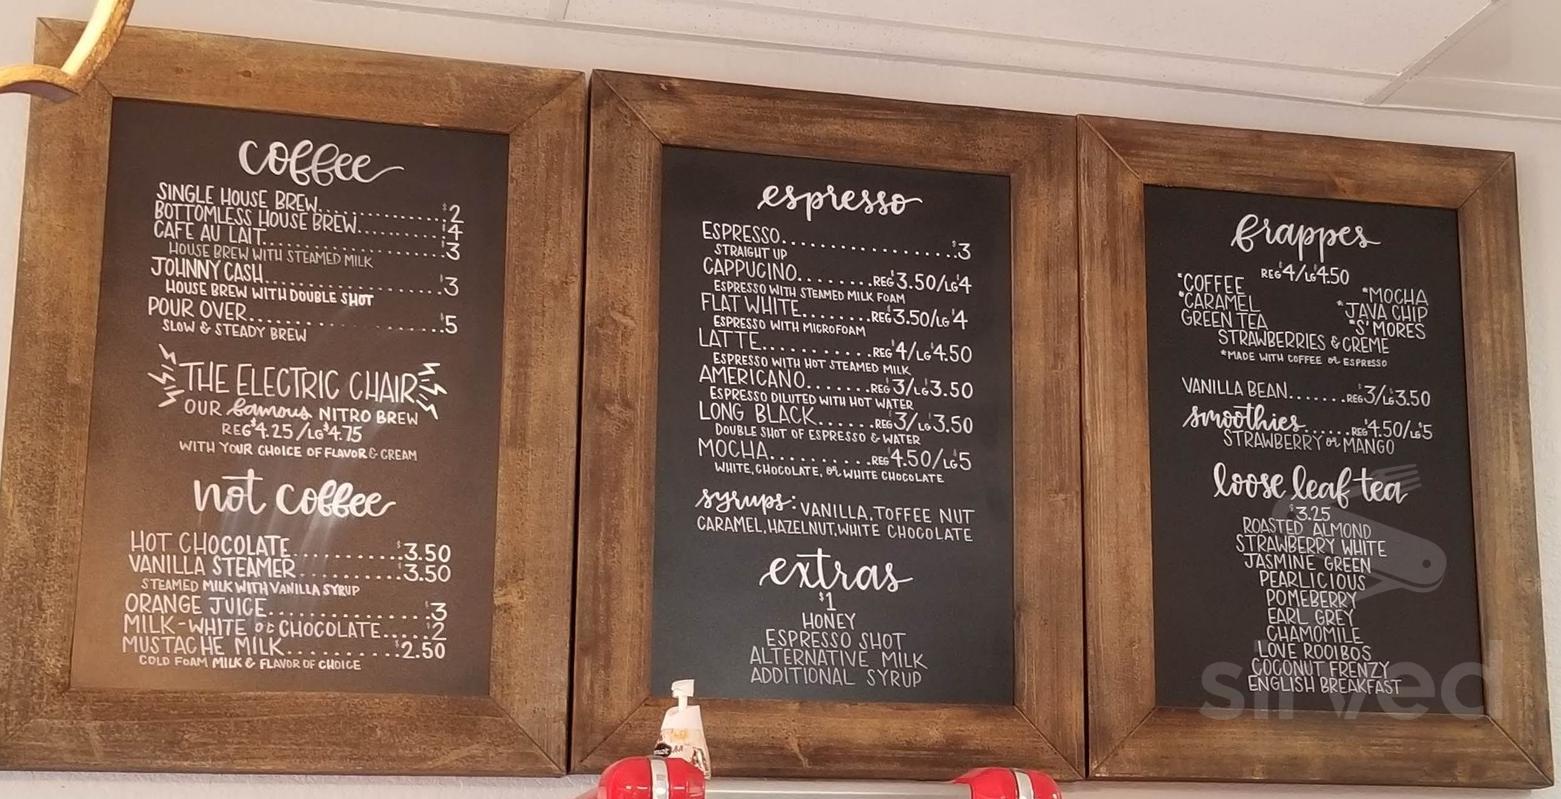 coffee
SINGLE HOUSE BREW..............$2
BOTTOMLESS HOUSE BREW..........$4
CAFE AU LAIT...................$3
HOUSE BREW WITH STEAMED MILK
JOHNNY CASH....................$3
HOUSE BREW WITH DOUBLE SHOT
POUR OVER......................$5
SLOW & STEADY BREW
THE ELECTRIC CHAIR
OUR famous NITRO BREW
REG $4.25/LG $4.75
WITH YOUR CHOICE OF FLAVOR & CREAM
not coffee
HOT CHOCOLATE..........$3.50
VANILLA STEAMER..........$3.50
STEAMED MILK WITH VANILLA SYRUP
ORANGE JUICE..............$3
MILK-WHITE or CHOCOLATE.....$2
MUSTACHE MILK..........$2.50
COLD FOAM MILK & FLAVOR OF CHOICE
espresso
ESPRESSO..............$3
STRAIGHT UP
CAPPUCINO.......REG $3.50/LG $4
ESPRESSO WITH STEAMED MILK FOAM
FLAT WHITE.......REG $3.50/LG $4
ESPRESSO WITH MICROFOAM
LATTE...........REG $4/LG $4.50
ESPRESSO WITH HOT STEAMED MILK
AMERICANO.......REG $3/LG $3.50
ESPRESSO DILUTED WITH HOT WATER
LONG BLACK......REG $3/LG $3.50
DOUBLE SHOT OF ESPRESSO & WATER
MOCHA..........REG $4.50/LG $5
WHITE, CHOCOLATE, or WHITE CHOCOLATE
syrups: VANILLA, TOFFEE NUT
CARAMEL, HAZELNUT, WHITE CHOCOLATE
extras
$1
HONEY
ESPRESSO SHOT
ALTERNATIVE MILK
ADDITIONAL SYRUP
frappes
REG $4/LG $4.50
*COFFEE *MOCHA
*CARAMEL *JAVA CHIP
GREEN TEA *S'MORES
STRAWBERRIES & CRÈME
*MADE WITH COFFEE or ESPRESSO
VANILLA BEAN.......REG $3/$3.50
smoothies......REG $4.50/LG $5
STRAWBERRY or MANGO
loose leaf tea
$3.25
ROASTED ALMOND
STRAWBERRY WHITE
JASMINE GREEN
PEARLICIOUS
POMEBERRY
EARL GREY
CHAMOMILE
LOVE ROOIBOS
COCONUT FRENZY
ENGLISH BREAKFAST
sirved